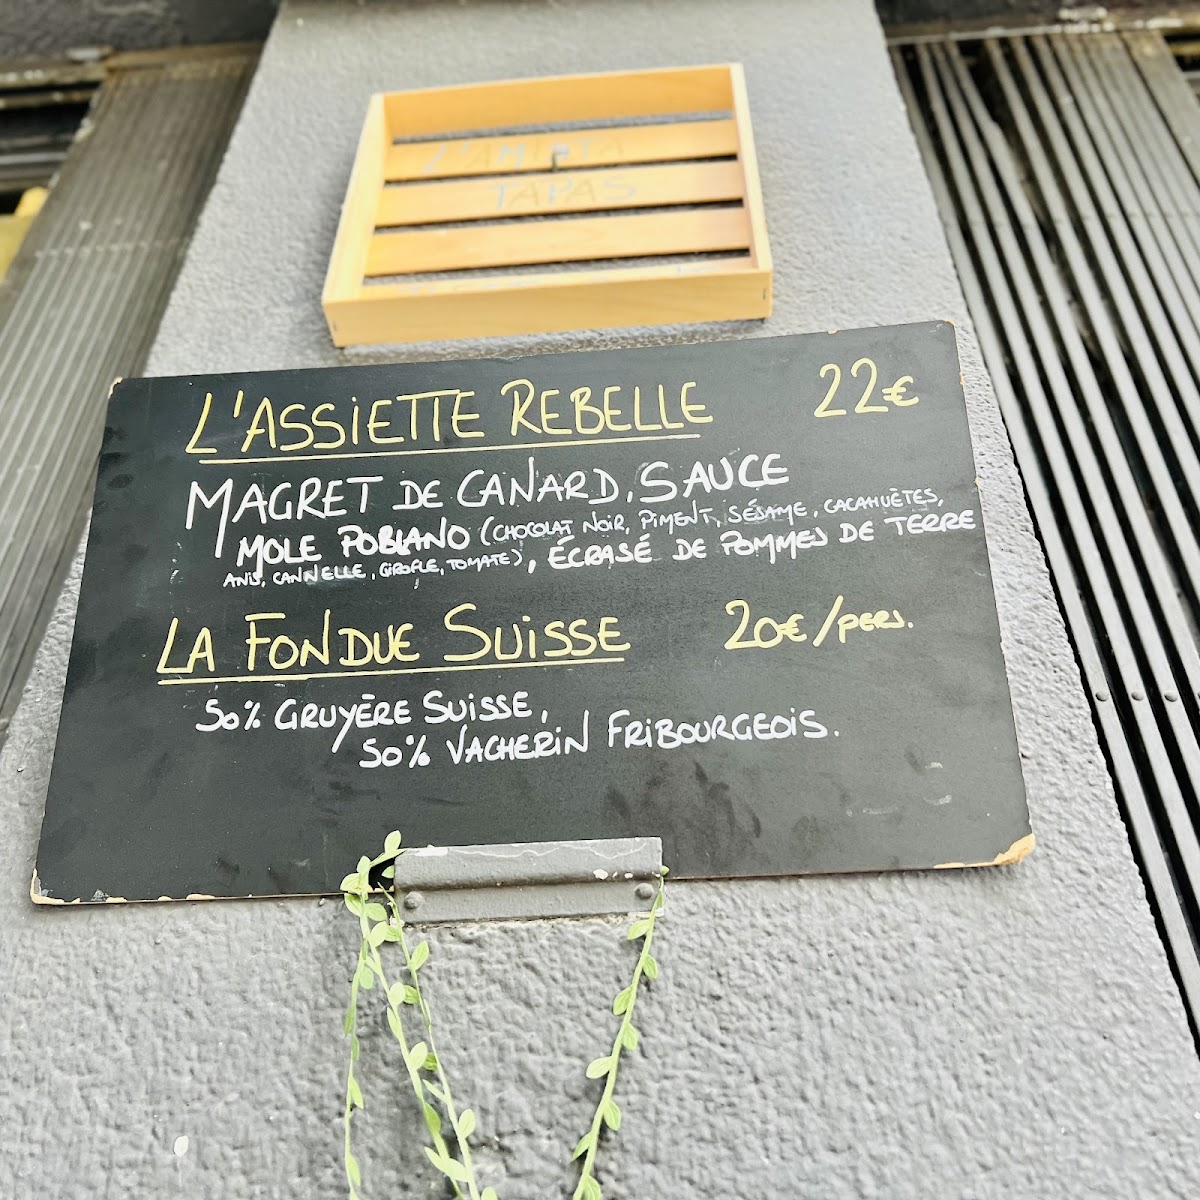 TAPAS
L'ASSIETTE REBELLE 22€
MAGRET DE CANARD, SAUCE
MOLE POBLANO (CHOCOLAT NOIR, PIMENT, SÉSAME, CACAHUÈTES,
ANIS, CANNELLE, GIROFLE, TOMATE), ÉCRASÉ DE POMMES DE TERRE
LA FONDUE SUISSE 20€/PERS.
50% GRUYÈRE SUISSE,
50% VACHERIN FRIBOURGEOIS.